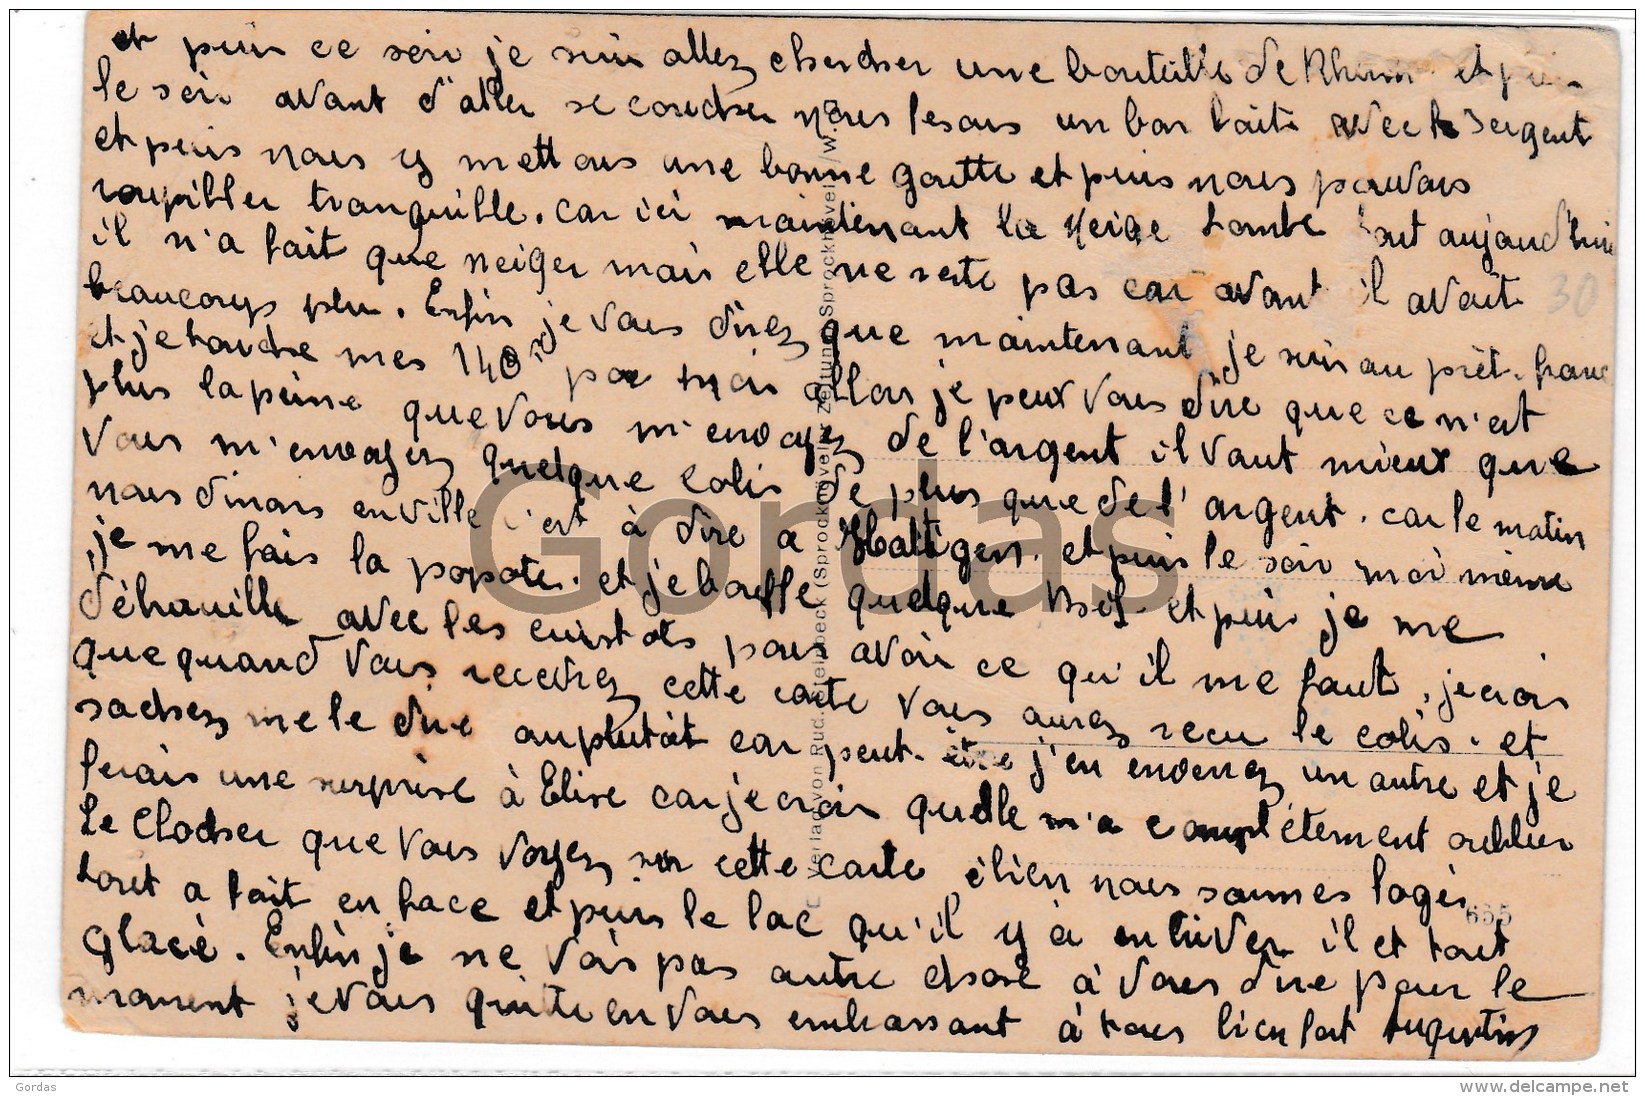 et puis ce soir je suis allez chercher une bouteille de Rhum et puis
le soir avant d'aller se coucher nous fesons un bon lait avec le Sergent
et puis nous y mettons une bonne goutte et puis nous pouvons
roupiller tranquille. car ici maintenant la Neige tombe tout aujourd'hui
il n'a fait que neiger mais elle ne reste pas car avant il avait
beaucoup plu. Enfin je vous direz que maintenant je suis au prêt. franc
et je touche mes 140 par mois allor je peux vous dire que ce n'est
plus la peine que vous m'envoyez de l'argent il vaut mieux que
vous m'envoyez quelque colis de plus que de l'argent. car le matin
nous dinons en ville c'est à dire a Hattigen. et puis le soir moi même
je me fais la popote. et je bouffe quelque et puis je me
débrouille avec les cuistots pour avoir ce qu'il me faut, je crois
que quand vous recevrez cette carte vous aurez recu le colis. et
sachez me le dire au plutôt car peut-être j'en enverez un autre et je
ferais une surprise à Elise car je crois quelle m'a complétement oublier
Le Clocher que vous voyez sur cette carte èh bien nous sommes logés
tout a fait en face et puis le lac qu'il y à en hiver il et tout
glacé. Enfin je ne vois pas autre chose à vous dire pour le
moment je vous quitte en vous embrassant à tous bien fort Augustin
Verlag von Rud. beck (Sprockhöveler Zeitung) Sprockhövel i/W.
665
30
Gordas
Gordas
www.delcampe.net